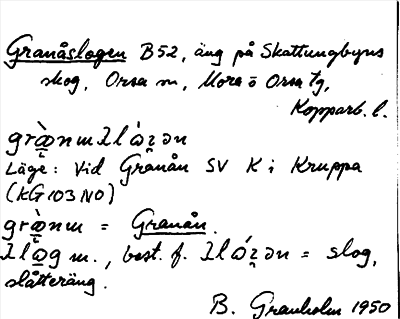 Granåslogen B52, äng på Skattungbyns
skog, Orsa sn, Mora o Orsa tg,
Kopparb. l.
Läge: Vid Granån SV K i Kruppa
(KG103NO)
= Granån.
m., best. f. = slog,
slåtteräng.
B. Granholm 1950